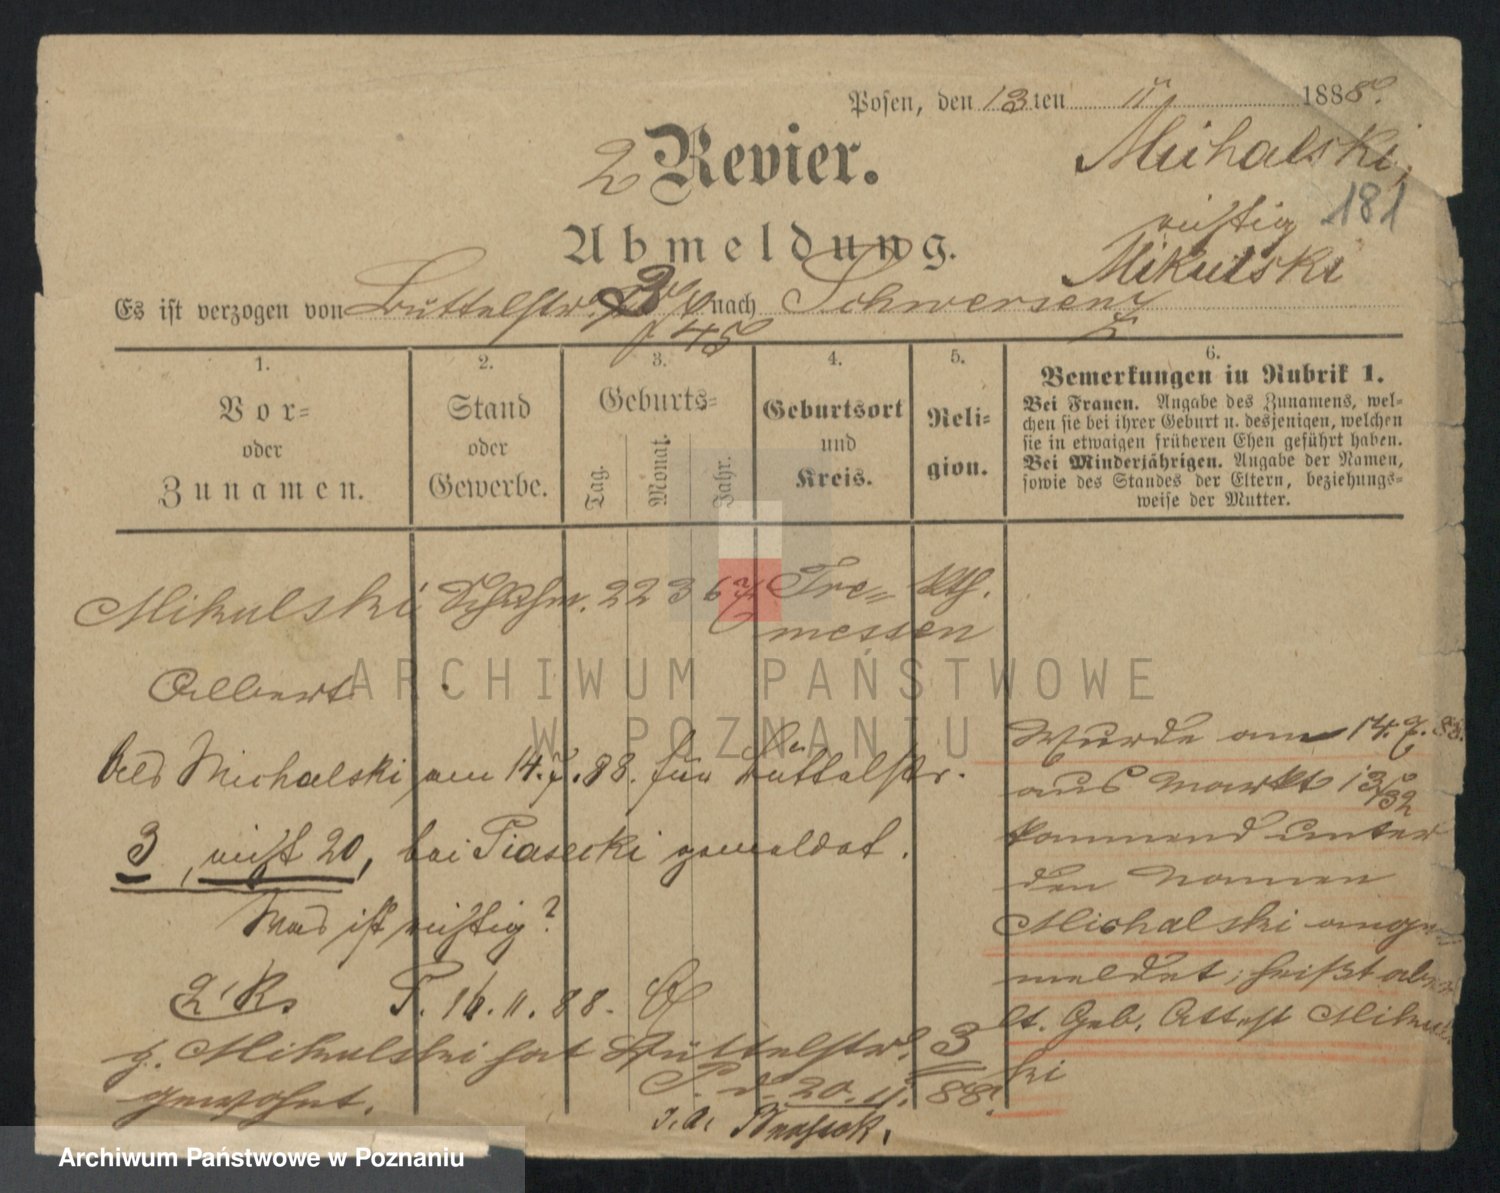 Posen, den 13ten 11 1888.
2 Revier.
Michalski,
181
richtig
Mikulski
Abmeldung.
Es ist verzogen von Büttelstr. 3 nach Schwersenz
45
1.
Vor-
oder
Zunamen.
2.
Stand
oder
Gewerbe.
3.
Geburts-
Tag. Monat. Jahr.
4.
Geburtsort
und
Kreis.
5.
Reli-
gion.
6.
Bemerkungen in Rubrik 1.
Bei Frauen. Angabe des Zunamens, wel-
chen sie bei ihrer Geburt u. desjenigen, welchen
sie in etwaigen früheren Ehen geführt haben.
Bei Minderjährigen. Angabe der Namen,
sowie des Standes der Eltern, beziehungs-
weise der Mutter.
Mikulski Schuhm. 22 3 67 Tre- Kth.
messen
Albert
als Michalski am 14.7.88. für Büttelstr.
3, nicht 20, bei Piasecki gemeldet.
Was ist richtig?
2. R. P. 16.11.88.
p. Mikulski hat Büttelstr. 3
gewohnt.
P. d. 20.11.88.
Wurde am 14.7.88.
aus Markt 13/32
kommend unter
den Namen
Michalski ange-
meldet; heißt aber
lt. Geb. Attest Mikuls-
ki
ARCHIWUM PAŃSTWOWE
W POZNANIU
Archiwum Państwowe w Poznaniu